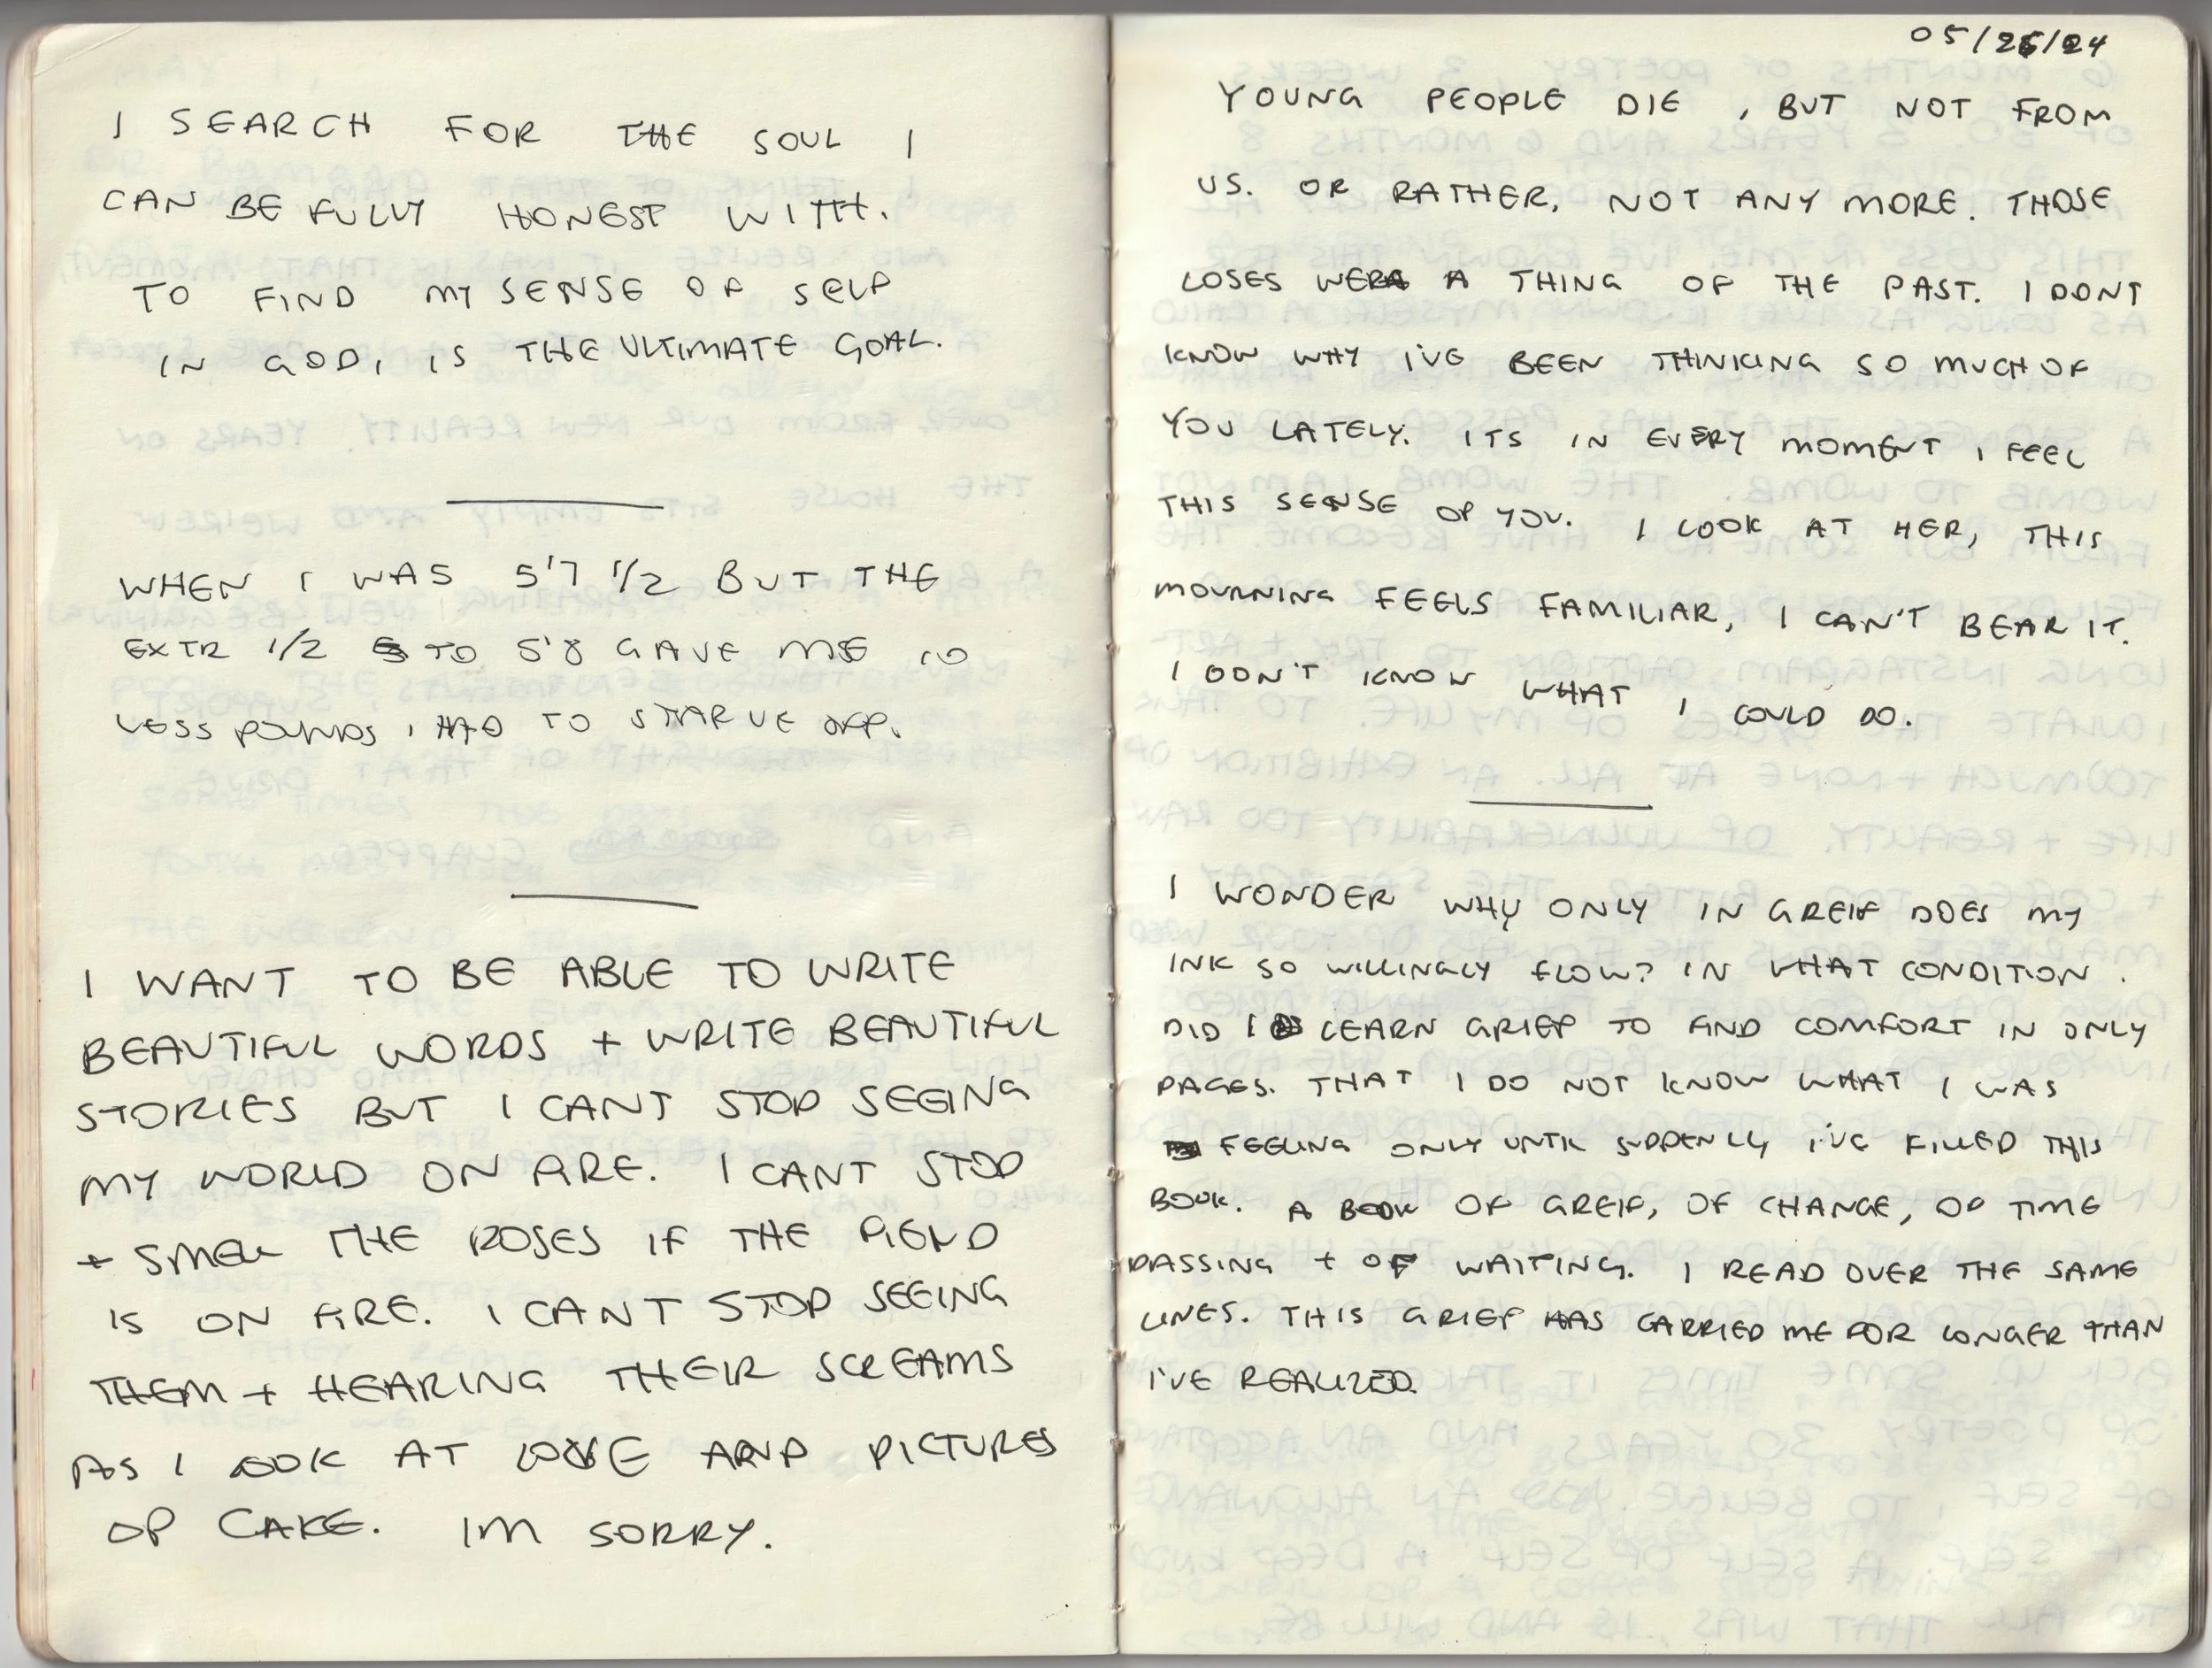 I SEARCH FOR THE SOUL I
CAN BE FULLY HONEST WITH.
TO FIND MY SENSE OF SELF
IN GOD, IS THE ULTIMATE GOAL.
WHEN I WAS 5'7 1/2 BUT THE
EXTR 1/2 TO 5'8 GAVE ME 10
LESS POUNDS I HAD TO STARVE OFF.
I WANT TO BE ABLE TO WRITE
BEAUTIFUL WORDS + WRITE BEAUTIFUL
STORIES BUT I CANT STOP SEEING
MY WORLD ON FIRE. I CANT STOP
+ SMELL THE ROSES IF THE FIELD
IS ON FIRE. I CANT STOP SEEING
THEM + HEARING THEIR SCREAMS
AS I LOOK AT LOVE AND PICTURES
OF CAKE. IM SORRY.
05/26/24
YOUNG PEOPLE DIE, BUT NOT FROM
US. OR RATHER, NOT ANY MORE. THOSE
LOSES WERE A THING OF THE PAST. I DONT
KNOW WHY I'VE BEEN THINKING SO MUCH OF
YOU LATELY. ITS IN EVERY MOMENT I FEEL
THIS SENSE OF YOU. I LOOK AT HER, THIS
MOURNING FEELS FAMILIAR, I CAN'T BEAR IT.
I DON'T KNOW WHAT I COULD DO.
I WONDER WHY ONLY IN GREIF DOES MY
INK SO WILLINGLY FLOW? IN WHAT CONDITION
DID I LEARN GRIEF TO FIND COMFORT IN ONLY
PAGES. THAT I DO NOT KNOW WHAT I WAS
FEELING ONLY UNTIL SUDDENLY I'VE FILLED THIS
BOOK. A BOOK OF GREIF, OF CHANGE, OF TIME
PASSING + OF WAITING. I READ OVER THE SAME
LINES. THIS GRIEF HAS CARRIED ME FOR LONGER THAN
I'VE REALIZED.